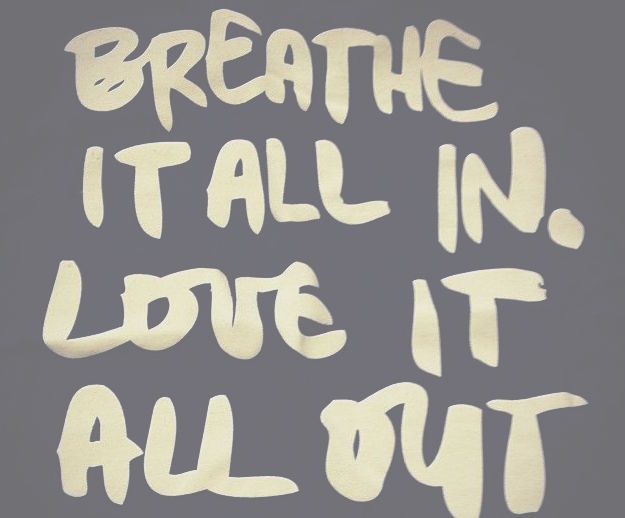 BREATHE
IT ALL IN.
LOVE IT
ALL OUT